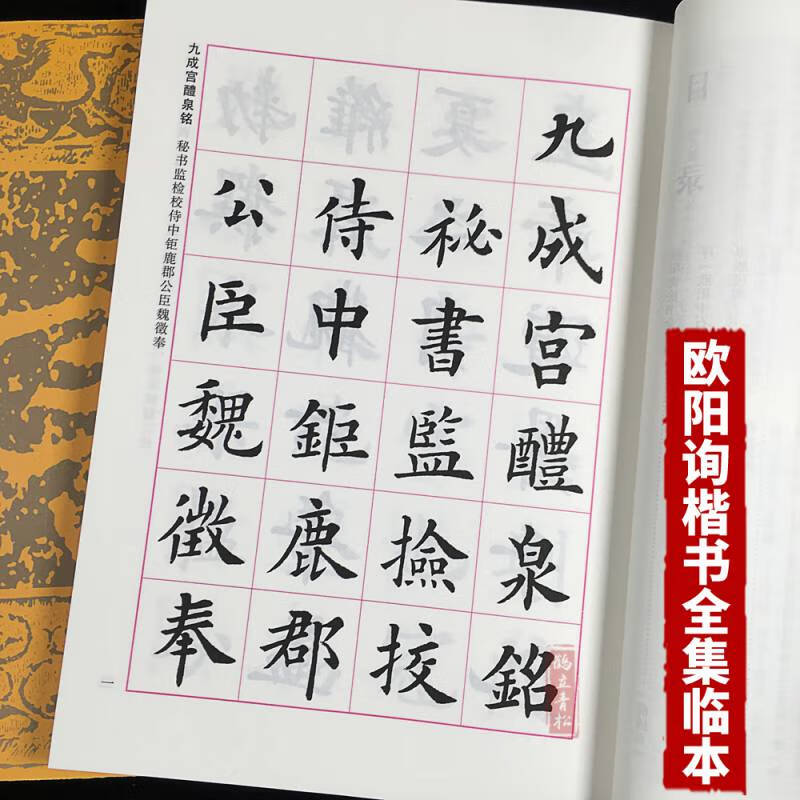 九成宮醴泉銘
祕書監撿挍
侍中鉅鹿郡
公臣魏徵奉
九成宫醴泉铭 秘书监检校侍中钜鹿郡公臣魏徵奉
一
鶴立青松
欧阳询楷书全集临本